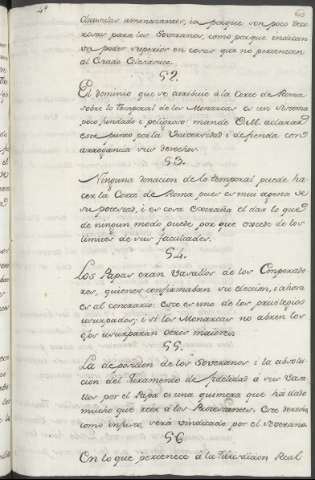 clausulas amenazantes, ia porque son poco deco
rosas para los Soveranos, como porque indican
un poder superior en cosas que no pertenecen
al Estado Eclesiastico.
§ 2.
El dominio que se atribuio á la Corte de Roma
sobre lo temporal de los Monarcas es un sistema
poco fundado i peligroso mande V.M. aclarar
este punto por la Universidad i defienda con
arrogancia sus derechos.
§ 3.
Ninguna donacion de lo temporal puede ha
cer la Corte de Roma pues es mui agena de
su potestad, i es cosa extraña el dar lo que
de ningun modo puede por que excede de los
limites de sus facultades.
§ 4.
Los Papas eran vasallos de los Emperado
res, quienes confirmaban su eleccion, i ahora
es al contrario: este es uno de los privilegios
usurpados; i si los Monarcas no abren los
ojos usurparan otros maiores.
§ 5.
La deposicion de los Soveranos i la absolu
cion del Juramento de fidelidad á sus vasa
llos por el Papa es una quimera que ha dado
mucho que reir á los Protestantes. Este
como injusta será vindicado por el Soverano
§ 6
En lo que pertenece á la Jurisdiccion Real